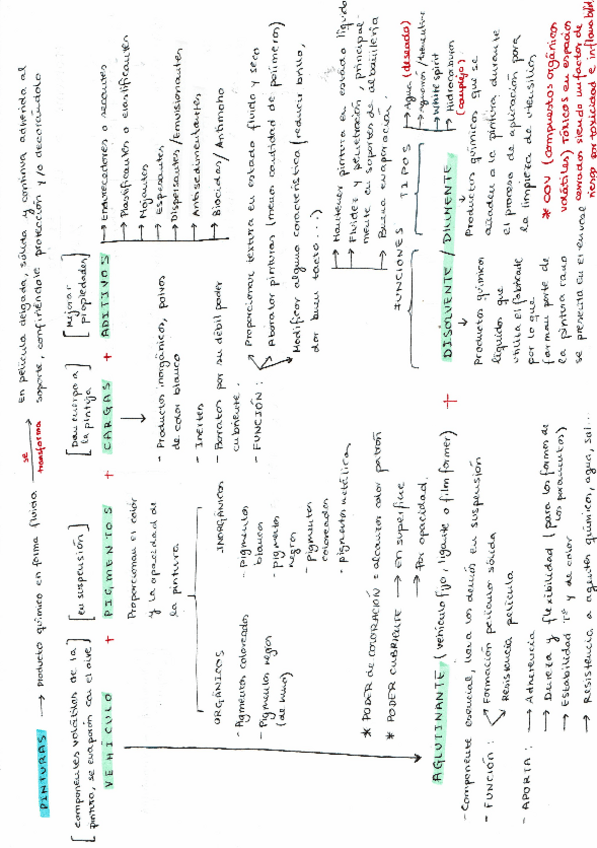 PINTURAS → Producto químico en forma fluida se transforma → En película delgada, sólida y continua adherida al
soporte, confiriéndole protección y/o decorándolo
[componentes volátiles de la
pintura, se evaporan con el aire]
[en suspensión]
[Dan cuerpo a
la pintura]
[Mejorar
propiedades]
VEHÍCULO + PIGMENTOS + CARGAS + ADITIVOS
Proporcionan el color
y la opacidad de
la pintura
ORGÁNICOS
- Pigmentos coloreados
- Pigmentos negros
(de humo)
INORGÁNICOS
- pigmentos
blancos
- pigmentos
negros
- pigmentos
coloreados
- pigmentos metálicos
- Productos inorgánicos, polvos
de color blanco
- Inertes
- Baratos por su débil poder
cubriente.
- FUNCIÓN:
Proporcionar textura en estado fluido y seco
Abaratar pinturas (menor cantidad de polímeros)
Modificar alguna característica (reducir brillo,
dar buen tacto...)
→ Endurecedores o secantes
→ Plastificantes o elastificantes
→ Mojantes
→ Espesantes
→ Dispersantes / Emulsionantes
→ Antisedimentantes
→ Biocidas / Antimoho
* PODER de COLORACIÓN = alcanzar color patrón
* PODER CUBRIENTE → en superficie
→ Por opacidad.
AGLUTINANTE (vehículo fijo, ligante o film former) + DISOLVENTE / DILUYENTE
- Componente esencial, une a los demás en suspensión
- FUNCIÓN: Formación película sólida
Resistencia película
- APORTA: → Adherencia
→ Dureza y flexibilidad (para las formas de
los paramentos)
→ Estabilidad Tª y de color
→ Resistencia a agentes químicos, agua, sal...
FUNCIONES
→ Mantener pintura en estado líquido
→ Fluidez y penetración, principal-
mente en soportes de albañilería
→ Buena evaporación.
TIPOS
→ Agua (deseado)
→ White spirit
→ Hidrocarburos
(complejo)
Productos químicos
líquidos que
utiliza el fabricante
por lo que
forman parte de
la pintura como
se presenta en el envase
Productos químicos que se
añaden a la pintura durante
el proceso de aplicación para
la limpieza de utensilios
* COV (compuestos orgánicos
volátiles) Tóxicos en espacios
cerrados siendo un factor de
riesgo por toxicidad e inflamabilidad